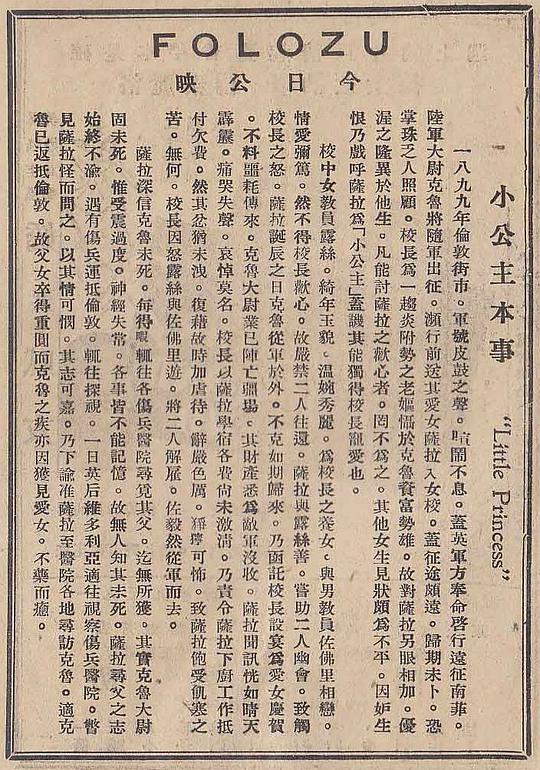 FOLOZU
今日公映
小公主本事 “Little Princess”
一八九九年倫敦街市。軍號皮鼓之聲。喧鬧不息。蓋英軍方奉命啓行遠征南菲。
陸軍大尉克魯將隨軍出征。瀕行前送其愛女薩拉入女校。蓋征途頗遠。歸期未卜。恐
掌珠乏人照顧。校長爲一趨炎附勢之老嫗懾於克魯資富勢雄。故對薩拉另眼相加。優
渥之隆異於他生。凡能討薩拉之歡心者。罔不爲之。其他女生見狀頗爲不平。因妒生
恨乃戲呼薩拉爲「小公主」蓋譏其能獨得校長寵愛也。
校中女教員露絲。綺年玉貌。溫婉秀麗。爲校長之養女。與男教員佐佛里相戀。
情愛彌篤。然不得校長歡心。故嚴禁二人往還。薩拉與露絲善。嘗助二人幽會。致觸
校長之怒。薩拉誕辰之日克魯從軍於外。不克如期歸來。乃函託校長設宴爲愛女慶賀
。不料噩耗傳來。克魯大尉業已陣亡疆場。其財產悉爲敵軍沒收。薩拉聞訊恍如晴天
霹靂。痛哭失聲。哀悼莫名。校長以薩拉學宿各費尙未激清。乃責令薩拉下廚工作抵
付欠費。然其忿猶未洩。復藉故時加虐待。辭嚴色厲。猙獰可怖。致薩拉飽受飢寒之
苦。無何。校長因怒露絲與佐佛里遊。將二人解雇。佐毅然從軍而去。
薩拉深信克魯未死。每得暇輒往各傷兵醫院尋覓其父。迄無所獲。其實克魯大尉
固未死。惟受震過度。神經失常。各事皆不能記憶。故無人知其未死。薩拉尋父之志
始終不渝。遇有傷兵運抵倫敦。輒往探視。一日英后維多利亞適往視察傷兵醫院。瞥
見薩拉怪而問之。以其情可憫。其志可嘉。乃下諭准薩拉至醫院各地尋訪克魯。適克
魯已返抵倫敦。故父女卒得重圓而克魯之疾亦因獲見愛女。不藥而癒。